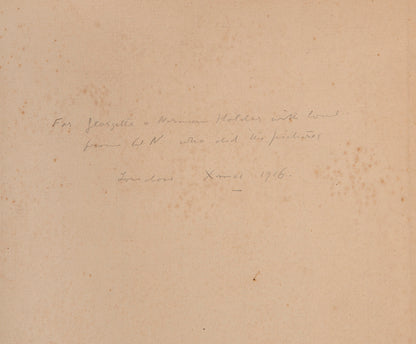 For Georgette & Norman Holder with love
from W N who did the pictures
London Xmas 1916.